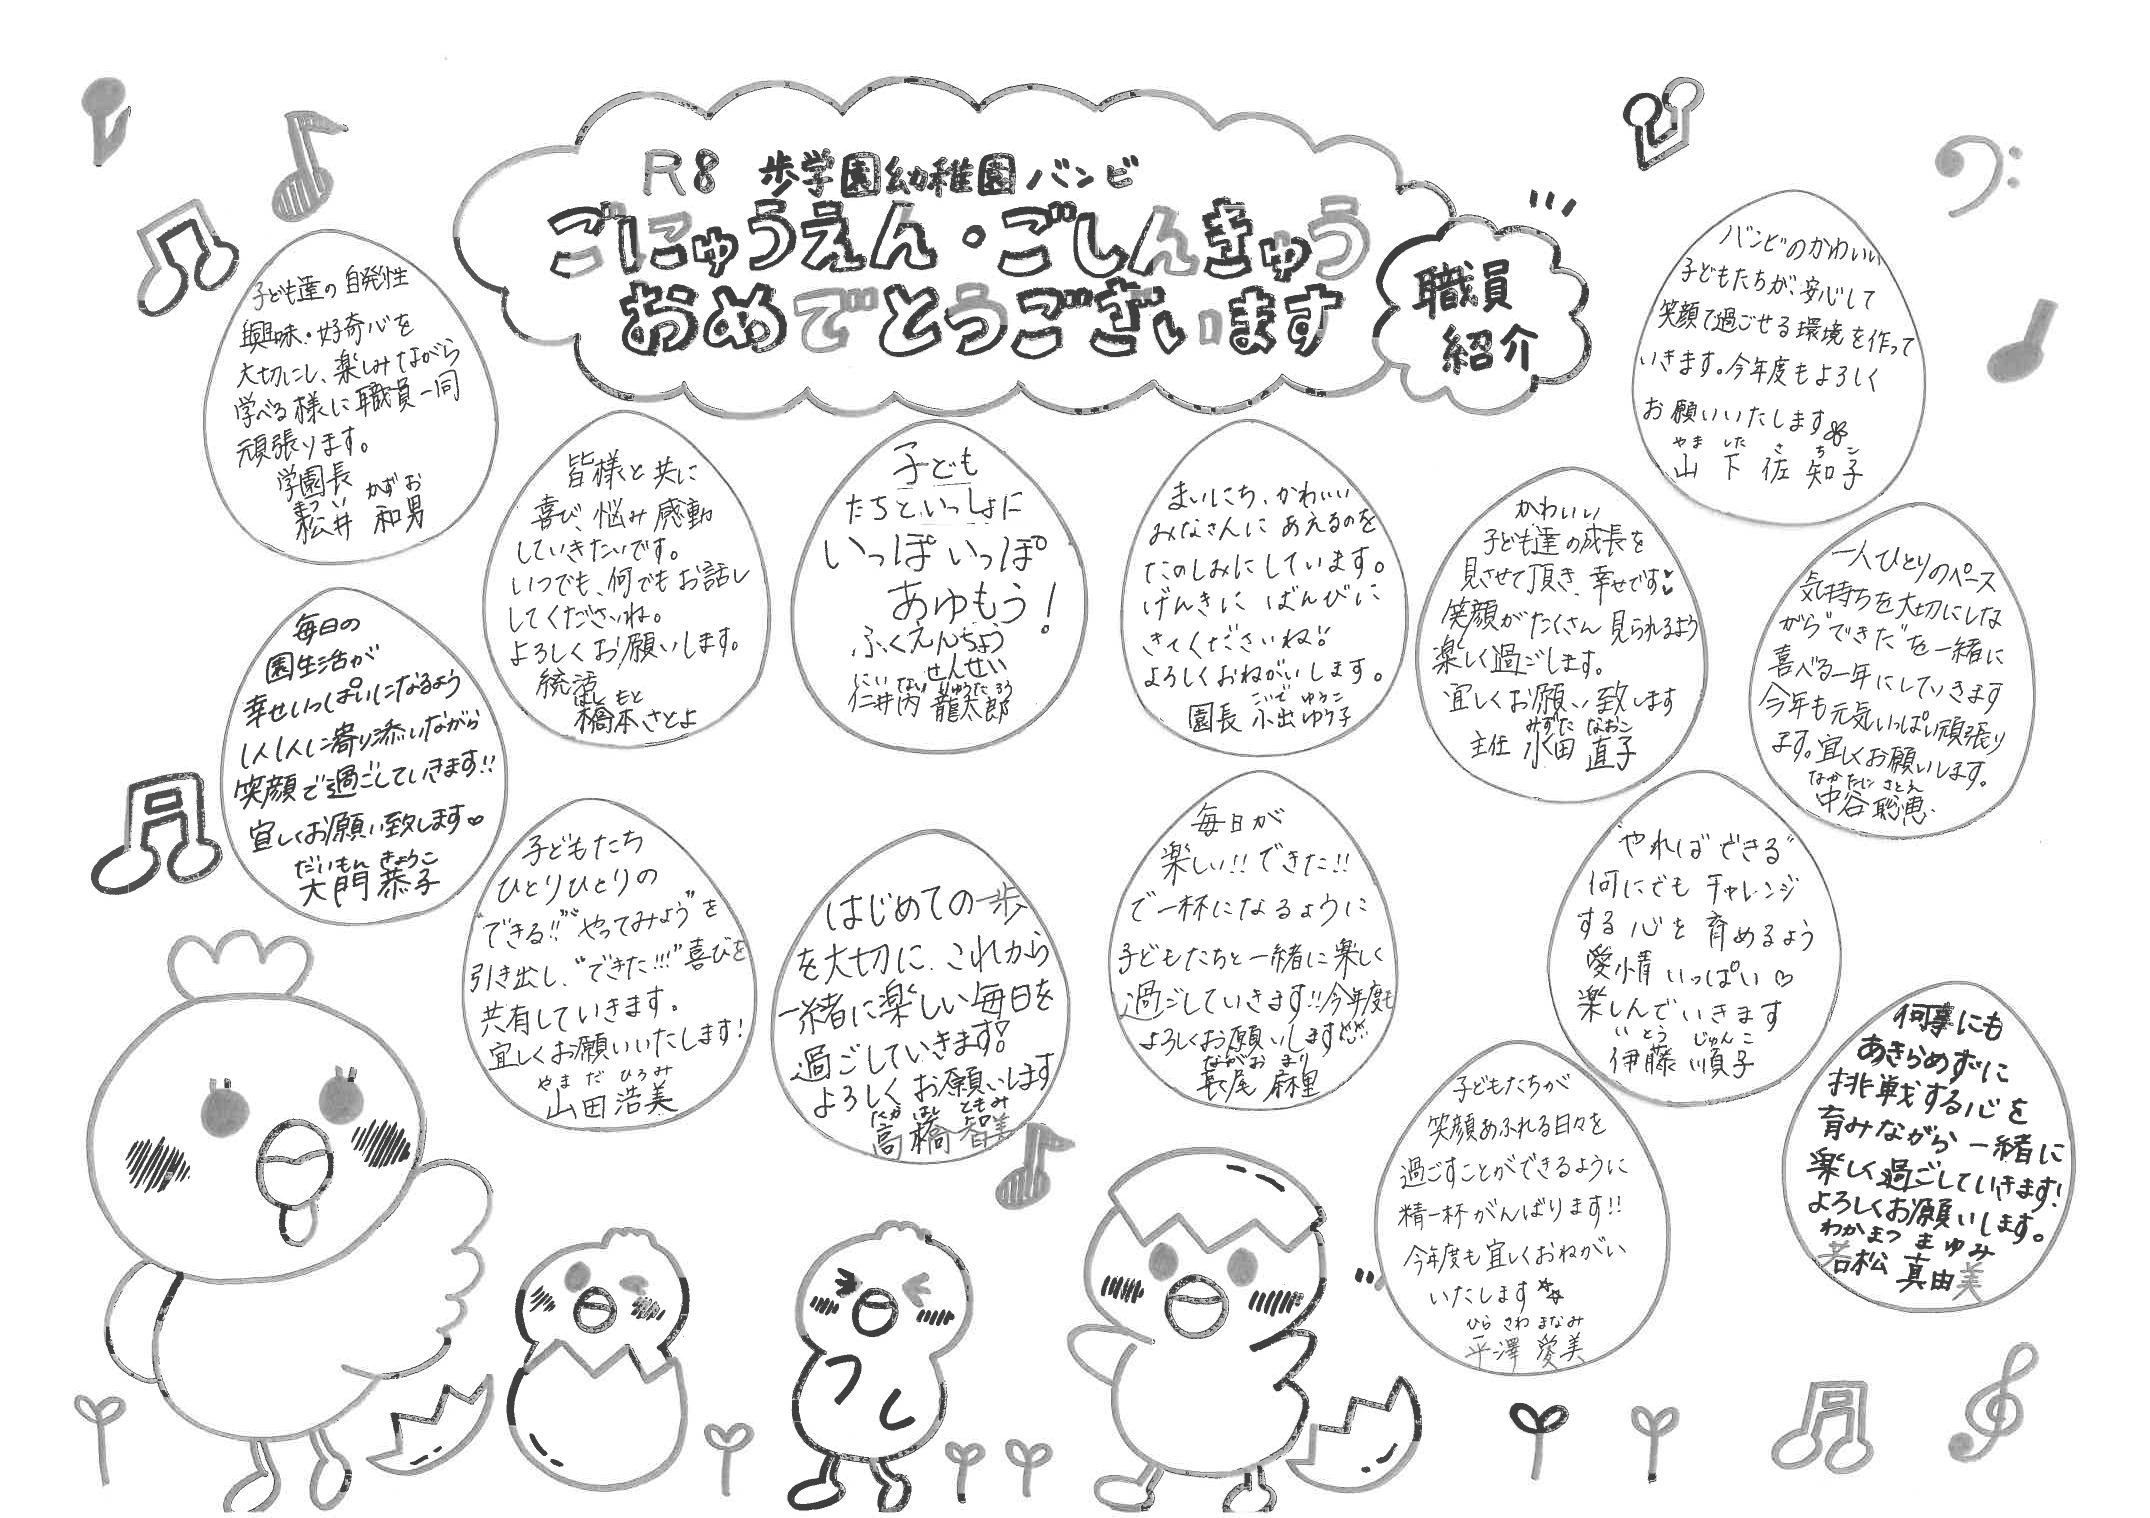 R8 歩学園幼稚園バンビ
ごにゅうえん・ごしんきゅう
おめでとうございます
職員
紹介
子ども達の自発性
興味・好奇心を
大切にし、楽しみながら
学べる様に職員一同
頑張ります。
学園長
まつ い かず お
松井 和男
皆様と共に
喜び、悩み感動
していきたいです。
いつでも、何でもお話し
してくださいね。
よろしくお願いします。
統活
はし もと
橋本さとよ
子ども
たちといっしょに
いっぽいっぽ
あゆもう!
ふくえんちょう
せんせい
にい ない りゅうた ろう
仁井内 龍太郎
まいにち、かわいい
みなさんに あえるのを
たのしみにしています。
げんきに ばんびに
きてくださいね!!
よろしくおねがいします。
こいで ゆうこ
園長 小出ゆう子
かわいい
子ども達の成長を
見させて頂き、幸せです♡
笑顔がたくさん見られるよう
楽しく過ごします。
宜しくお願い致します
みずた なおこ
主任 水田 直子
バンビのかわいい
子どもたちが、安心して
笑顔で過ごせる環境を作って
いきます。今年度もよろしく
お願いいたします
やま した さ ち こ
山下佐知子
一人ひとりのペース
気持ちを大切にしな
がら"できた"を一緒に
喜べる一年にしていきます
今年も元気いっぱい頑張り
ます。宜しくお願いします。
なかたに さとえ
中谷聡恵
毎日の
園生活が
幸せいっぱいになるよう
1人1人に寄り添いながら
笑顔で過ごしていきます!!
宜しくお願い致します♡
だいもん きょうこ
大門 恭子
子どもたち
ひとりひとりの
"できる!!""やってみよう"を
引き出し、"できた!!!"喜びを
共有していきます。
宜しくお願いいたします!
やま だ ひろみ
山田浩美
はじめての一歩
を大切に、これから
一緒に楽しい毎日を
過ごしていきます!
よろしくお願いします
たか はし ともみ
高橋 智美
毎日が
楽しい!!できた!!
で一杯になるように
子どもたちと一緒に楽しく
過ごしていきます!!今年度も
よろしくお願いします
ながお まり
長尾 麻里
"やればできる"
何にでもチャレンジ
する心を育めるよう
愛情いっぱい♡
楽しんでいきます
い とう じゅんこ
伊藤 順子
子どもたちが
笑顔あふれる日々を
過ごすことができるように
精一杯がんばります!!
今年度も宜しくおねがい
いたします☆
ひら さわ まなみ
平澤 愛美
何事にも
あきらめずに
挑戦する心を
育みながら一緒に
楽しく過ごしていきます!
よろしくお願いします。
わかまつ まゆみ
若松 真由美